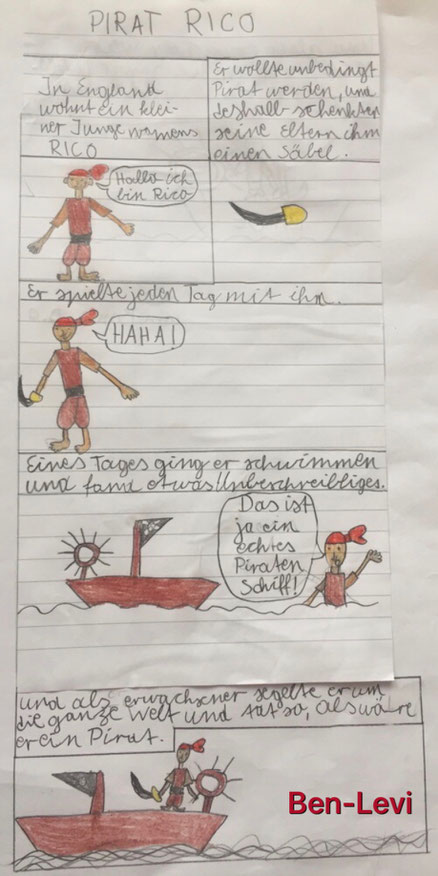 PIRAT RICO
In England
wohnt ein klei-
ner Junge namens
RICO
Er wollte unbedingt
Pirat werden, und
deshalb schenkten
seine Eltern ihm
einen Säbel.
Hallo ich
bin Rico
Er spielte jeden Tag mit ihm.
HAHA!
Eines Tages ging er schwimmen
und fand etwas Unbeschreibliges.
Das ist
ja ein
echtes
Piraten
Schiff!
und als erwachsener segelte er um
die ganze Welt und tat so, als wäre
er ein Pirat.
Ben-Levi